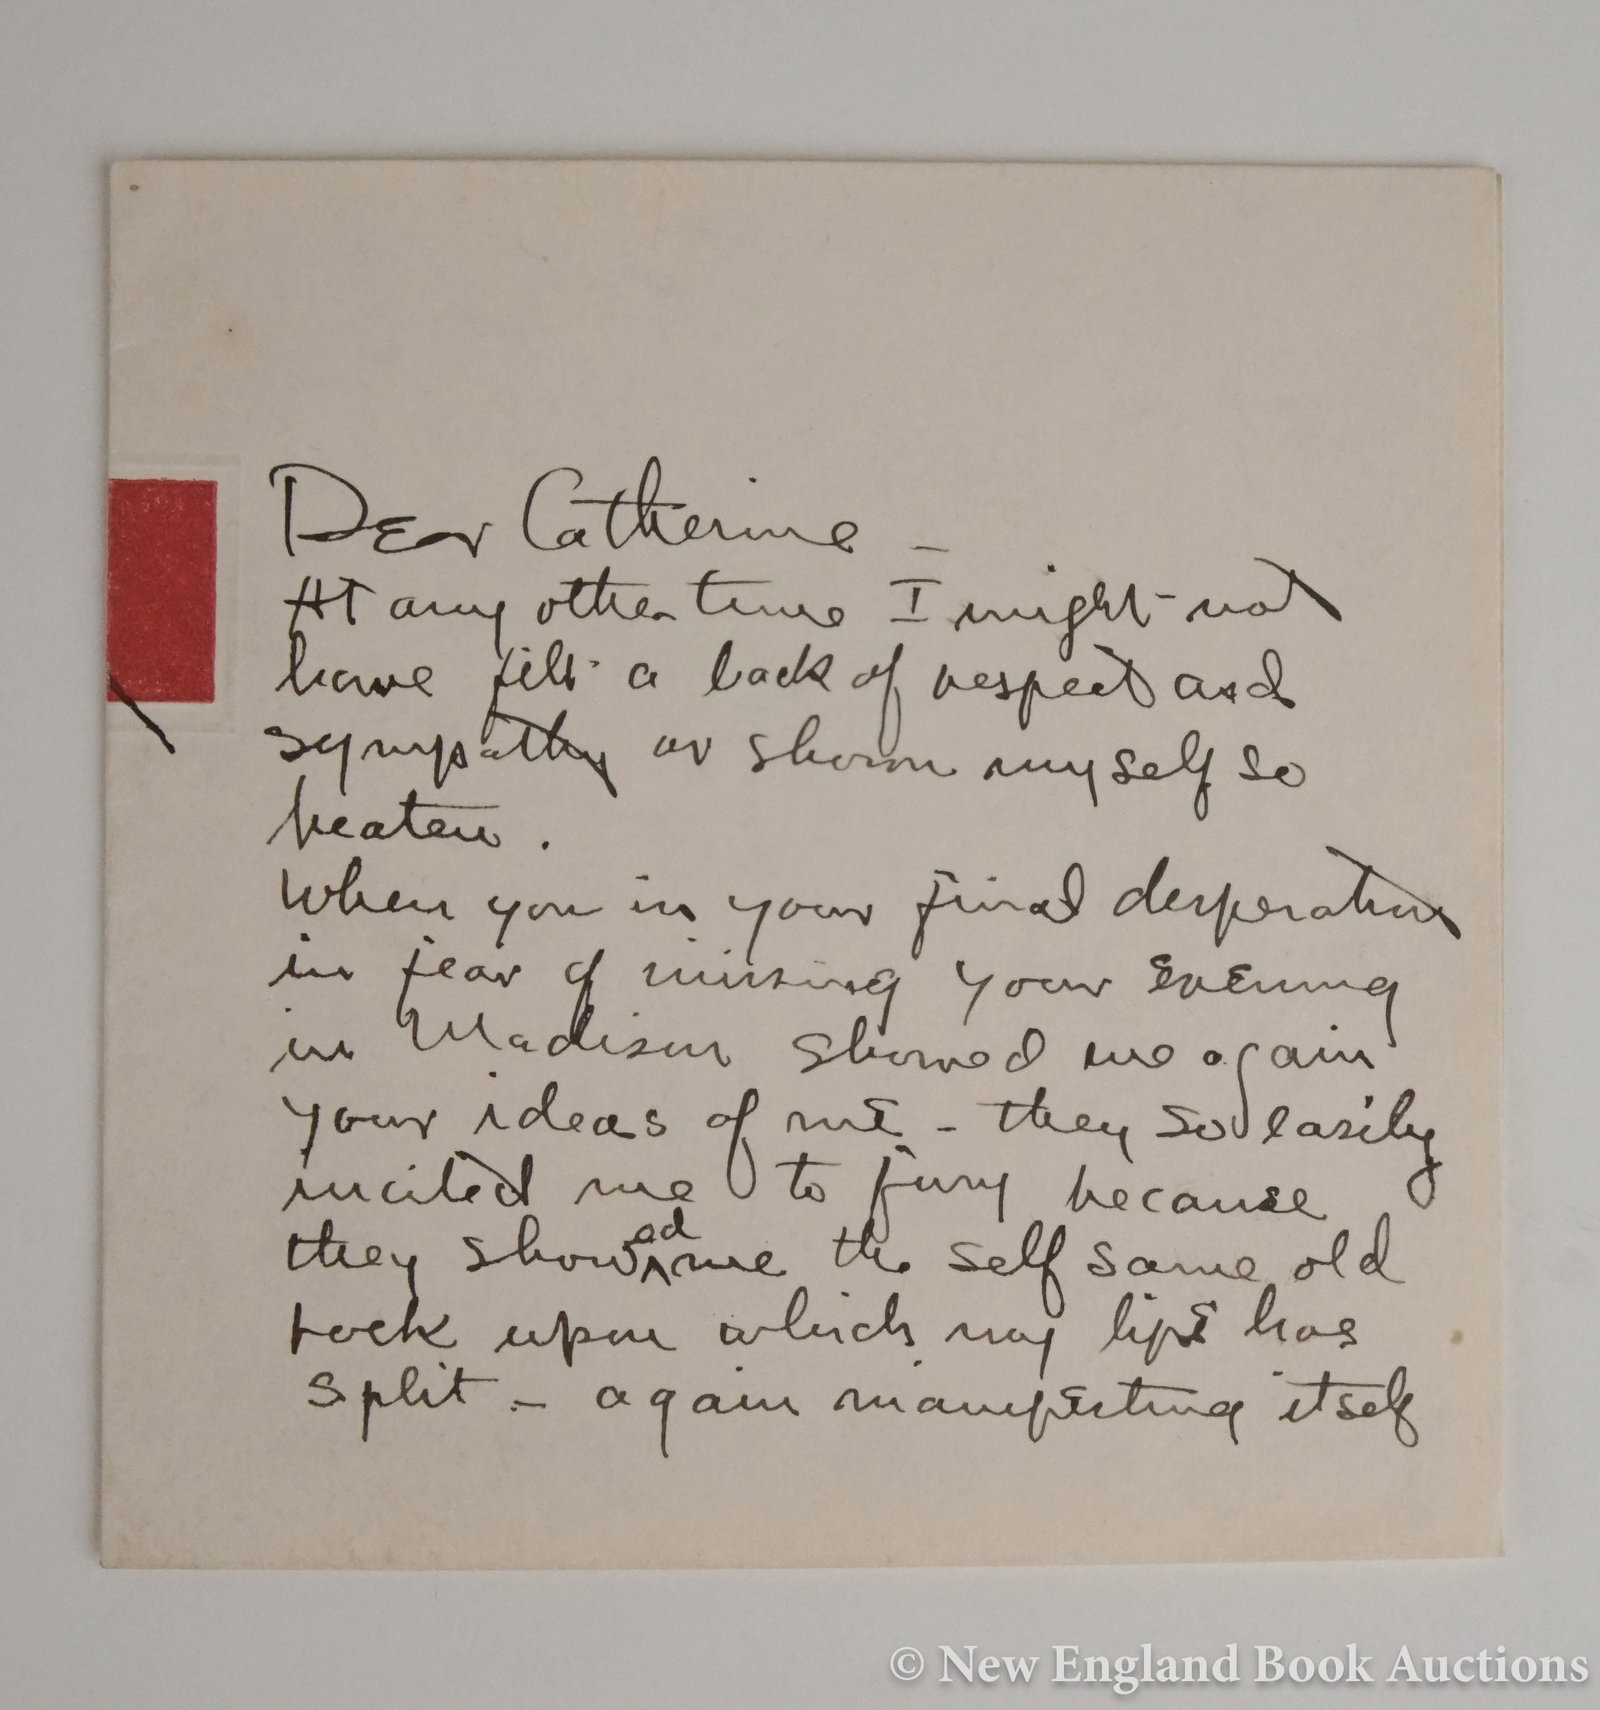 Dear Catherine –
At any other time I might not
have felt a lack of respect and
sympathy or shown myself so
beaten.
When you in your final desperation
in fear of missing your evening
in Madison showed me again
your ideas of me – they so easily
incited me to fury because
they showed me the self same old
rock upon which my life has
split – again manifesting itself
© New England Book Auctions